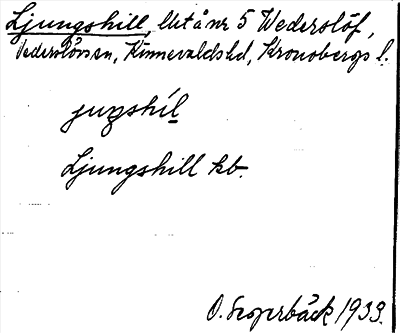 Ljungshill, lht å nr 5 Wederslöf,
Vederslövs sn, Kinnevalds hd, Kronobergs l.
juŋshil
Ljungshill kb.
O. 1933.